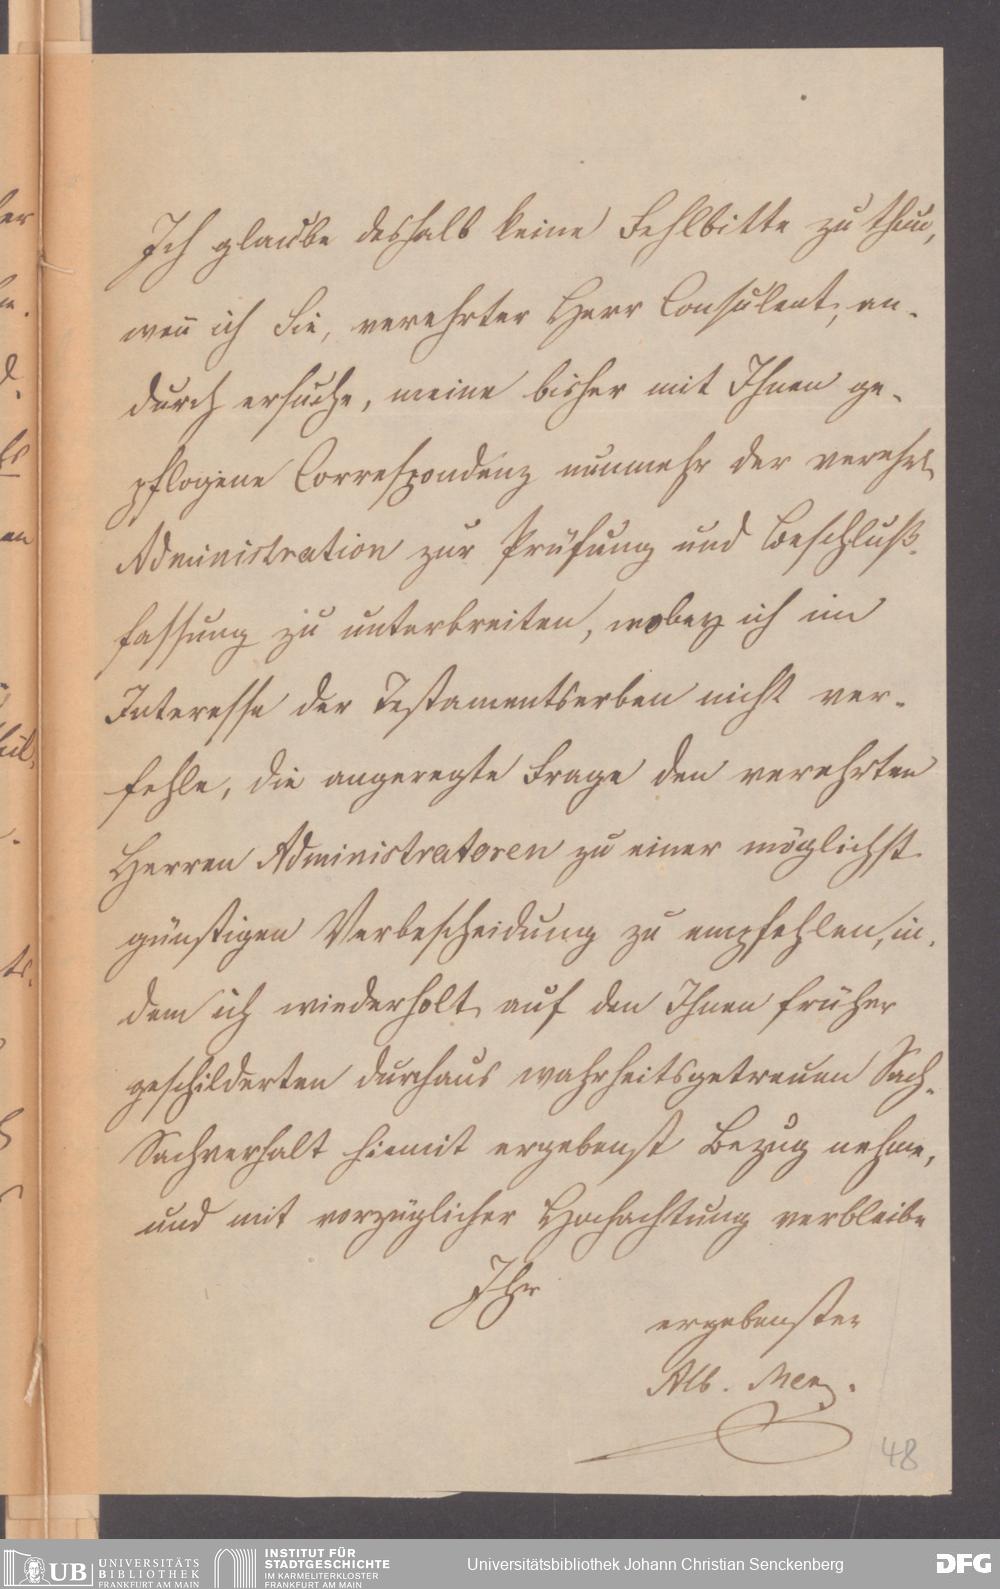 Ich glaube deshalb keine Fehlbitte zu thun,
wen̄ ich Sie, verehrter Herr Consulent, an-
durch ersuche, meine bisher mit Ihnen ge-
pflogene Correspondenz nunmehr der verehrl.
Administration zur Prüfung und Beschluß-
fassung zu unterbreiten, wobey ich im
Interesse der Testamentserben nicht ver-
fehle, die angeregte Frage den verehrten
Herren Administratoren zu einer möglichst
günstigen Verbescheidung zu empfehlen, in-
dem ich wiederholt auf den Ihnen früher
geschilderten durchaus wahrheitsgetreuen Sach-
Sachverhalt hiemit ergebenst Bezug nehme,
und mit vorzüglicher Hochachtung verbleibe
Ihr
ergebenster
Alb.
48
UB UNIVERSITÄTS
BIBLIOTHEK
FRANKFURT AM MAIN
INSTITUT FÜR
STADTGESCHICHTE
IM KARMELITERKLOSTER
FRANKFURT AM MAIN
Universitätsbibliothek Johann Christian Senckenberg
DFG